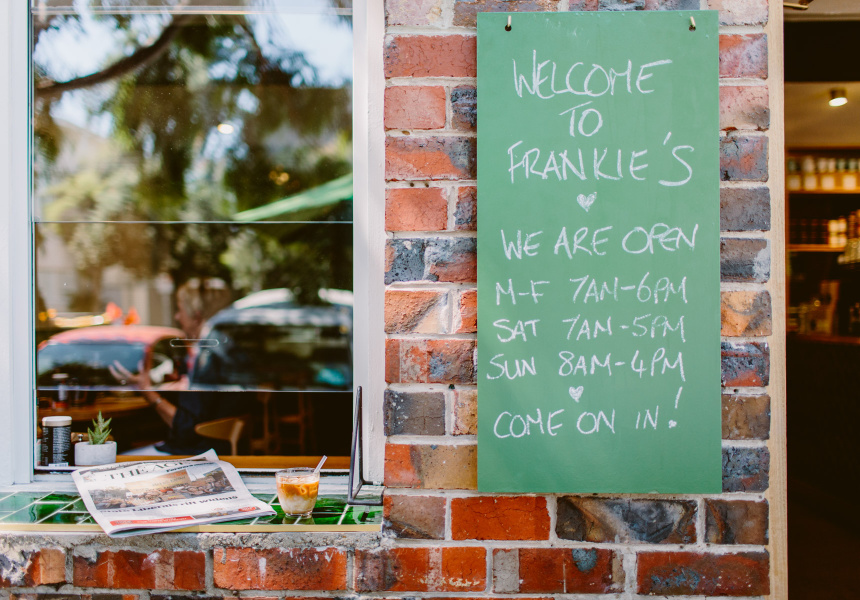 WELCOME
TO
FRANKIE'S
WE ARE OPEN
M-F 7AM-6PM
SAT 7AM-5PM
SUN 8AM-4PM
COME ON IN!
THE AGE